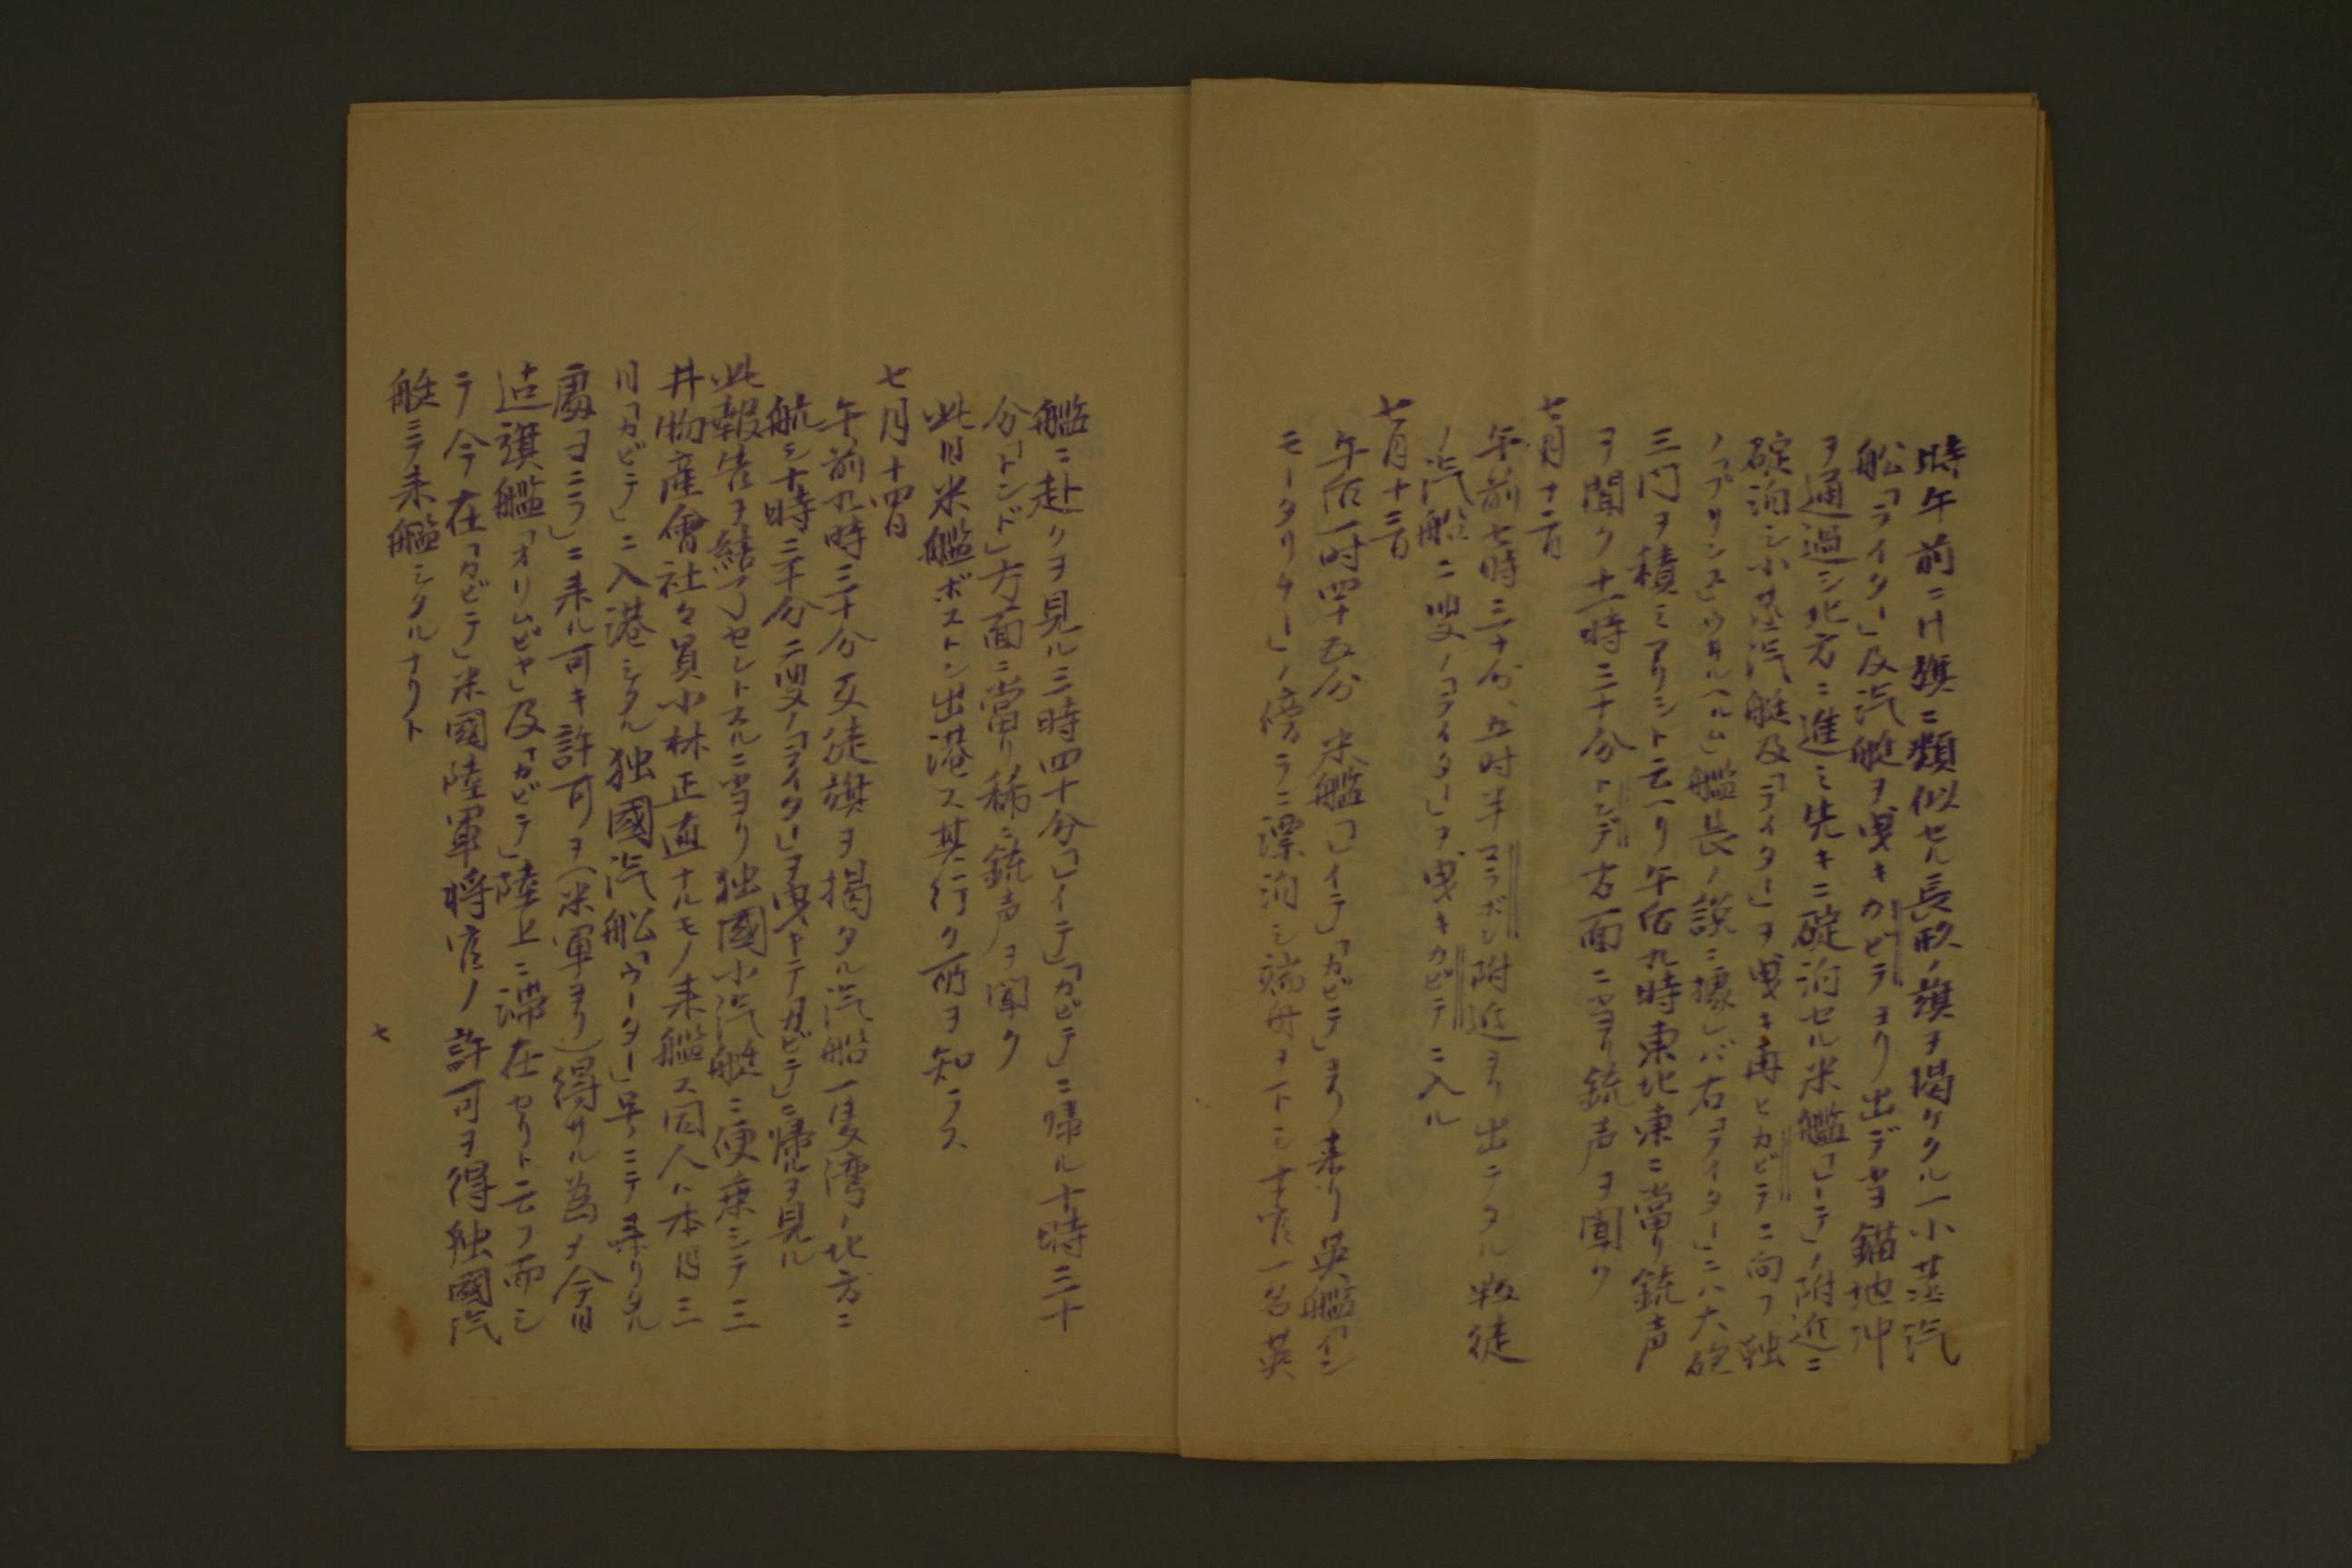 時午前ニ叶旗ニ類似セル長形ノ旗ヲ掲ケタル一小蒸汽
舩「ライター」及汽艇ヲ曳キカビテヨリ出デ当錨地沖
ヲ通過シ北方ニ進ミ先キニ碇泊セル米艦「レーテ」ノ附近ニ
碇泊シ小蒸汽艇及「ライター」ヲ曳キ再ヒカビテニ向フ独
ノ「プリンス、ウヰルヘルム」艦長ノ説ニ據レバ右「ライター」ニハ大砲
三門ヲ積ミアリシト云ヘリ午后九時東北東ニ當リ銃声
ヲ聞ク十一時三十分トンデ方面ニ当リ銃声ヲ聞ク
七月十二日
午前七時三十分、五时半マラボン附近ヨリ出テタル叛徒
ノ汽船二叟ノ「ライター」ヲ曳キカビテニ入ル
七月十三日
午后一时四十五分米艦「レイテ」「カビテ」ヨリ来リ英艦「イン
モータリチー」ノ傍ラニ漂泊シ端舟ヲ下シ士官一名英
艦ニ赴クヲ見ル三時四十分「レイテ」「カビテ」ニ帰ル十時三十
分「トンド」方面ニ當リ稀ニ銃声ヲ聞ク
此日米艦ボストン出港ス其行ク所ヲ知ラス
七月十四日
午前九時三十分叉徒旗ヲ掲タル汽船一隻湾ノ北方ニ
航シ十時二十分二叟ノ「ライター」ヲ曳キテ「カビテ」ニ帰ルヲ見ル
此報告ヲ結了セントスルニ当リ独國小汽艇ニ便乗シテ三
井物産會社々員小林正直ナルモノ来艦ス同人ハ本月三
日「カビテ」ニ入港シタル独國汽舩「ウーター」号ニテ来リタル
處ヨニラ」ニ来ル可キ許可ヲ(米軍ヨリ)得サル為メ今日
迠旗艦「オリムピヤ」及「カビテ」陸上ニ滞在セリト云フ而シ
テ今在「カビテ」米國陸軍将官ノ許可ヲ得独國汽
艇ニテ来艦シタルナリト
七